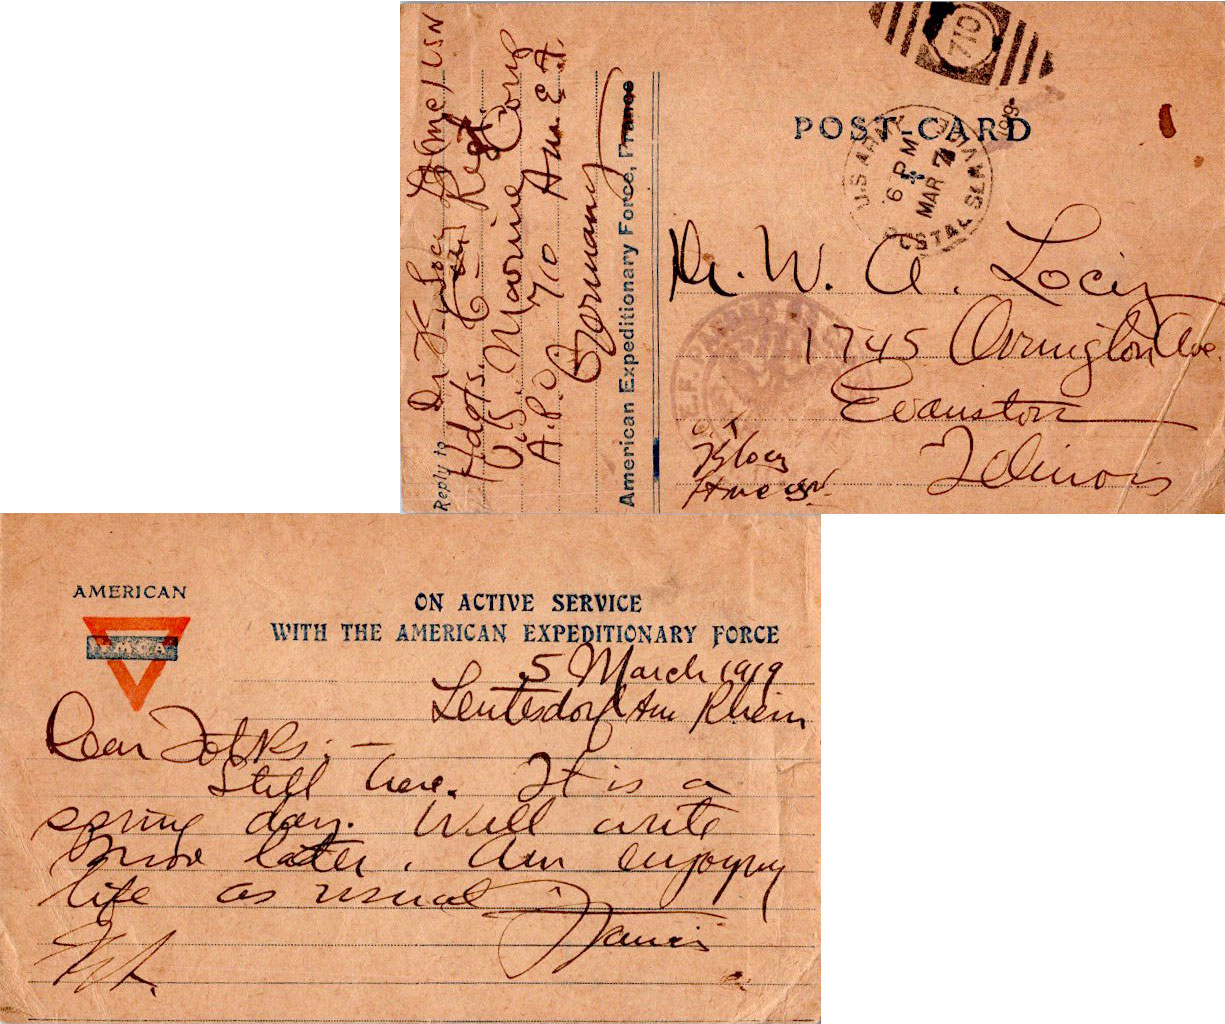 Reply to Dr. F. Locy Lt (mc) USN
Hdqts. 6th Regt.
U.S. Marine Corps
A.P.O 710 Am. E.F.
Germany
American Expeditionary Force, France
710
POST-CARD
U.S ARMY POSTAL SERVICE
6 PM
MAR 7
1919
Dr. W. A. Locy
1745 Orrington Ave.
Evanston
Illinois
A.E.F. PASSED AS
O.K
F Locy
USN
AMERICAN
YMCA
ON ACTIVE SERVICE
WITH THE AMERICAN EXPEDITIONARY FORCE
5 March 1919
Leutesdorf Am Rhein
Dear Folks:—
Still here. It is a
spring day. Will write
more later. Am enjoying
life as usual
Francis